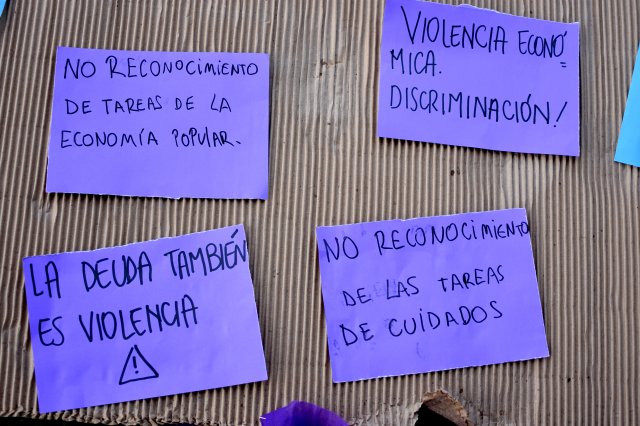 NO RECONOCIMIENTO
DE TAREAS DE LA
ECONOMÍA POPULAR.
VIOLENCIA ECONÓ=
MICA.
DISCRIMINACIÓN!
LA DEUDA TAMBIÉN
ES VIOLENCIA
!
NO RECONOCIMIENTO
DE LAS TAREAS
DE CUIDADOS